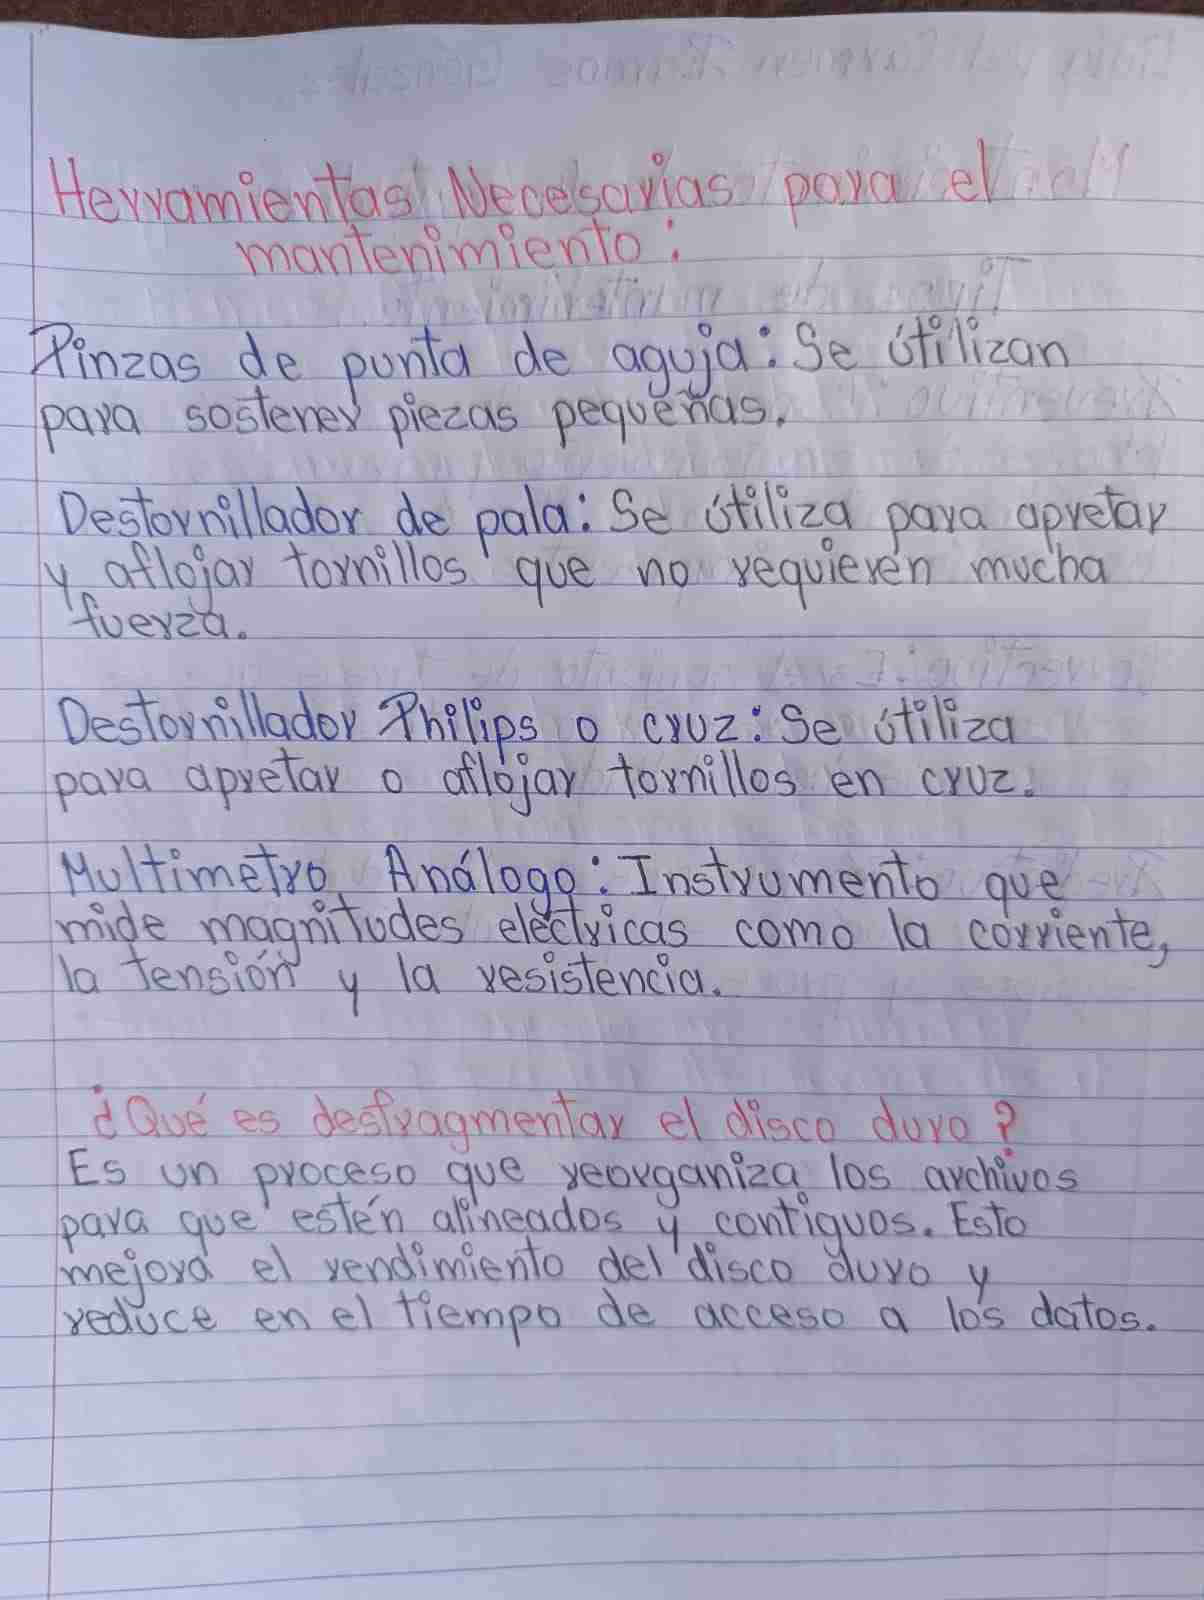 Herramientas Necesarias para el
mantenimiento:
Pinzas de punta de aguja: Se útilizan
para sostener piezas pequeñas.
Destornillador de pala: Se útiliza para apretar
y aflojar tornillos que no requieren mucha
fuerza.
Destornillador Philips o cruz: Se útiliza
para apretar o aflojar tornillos en cruz.
Multimetro Análogo: Instrumento que
mide magnitudes eléctricas como la corriente,
la tensión y la resistencia.
¿Qué es desfragmentar el disco duro?
Es un proceso que reorganiza los archivos
para que estén alineados y contiguos. Esto
mejora el rendimiento del disco duro y
reduce en el tiempo de acceso a los datos.